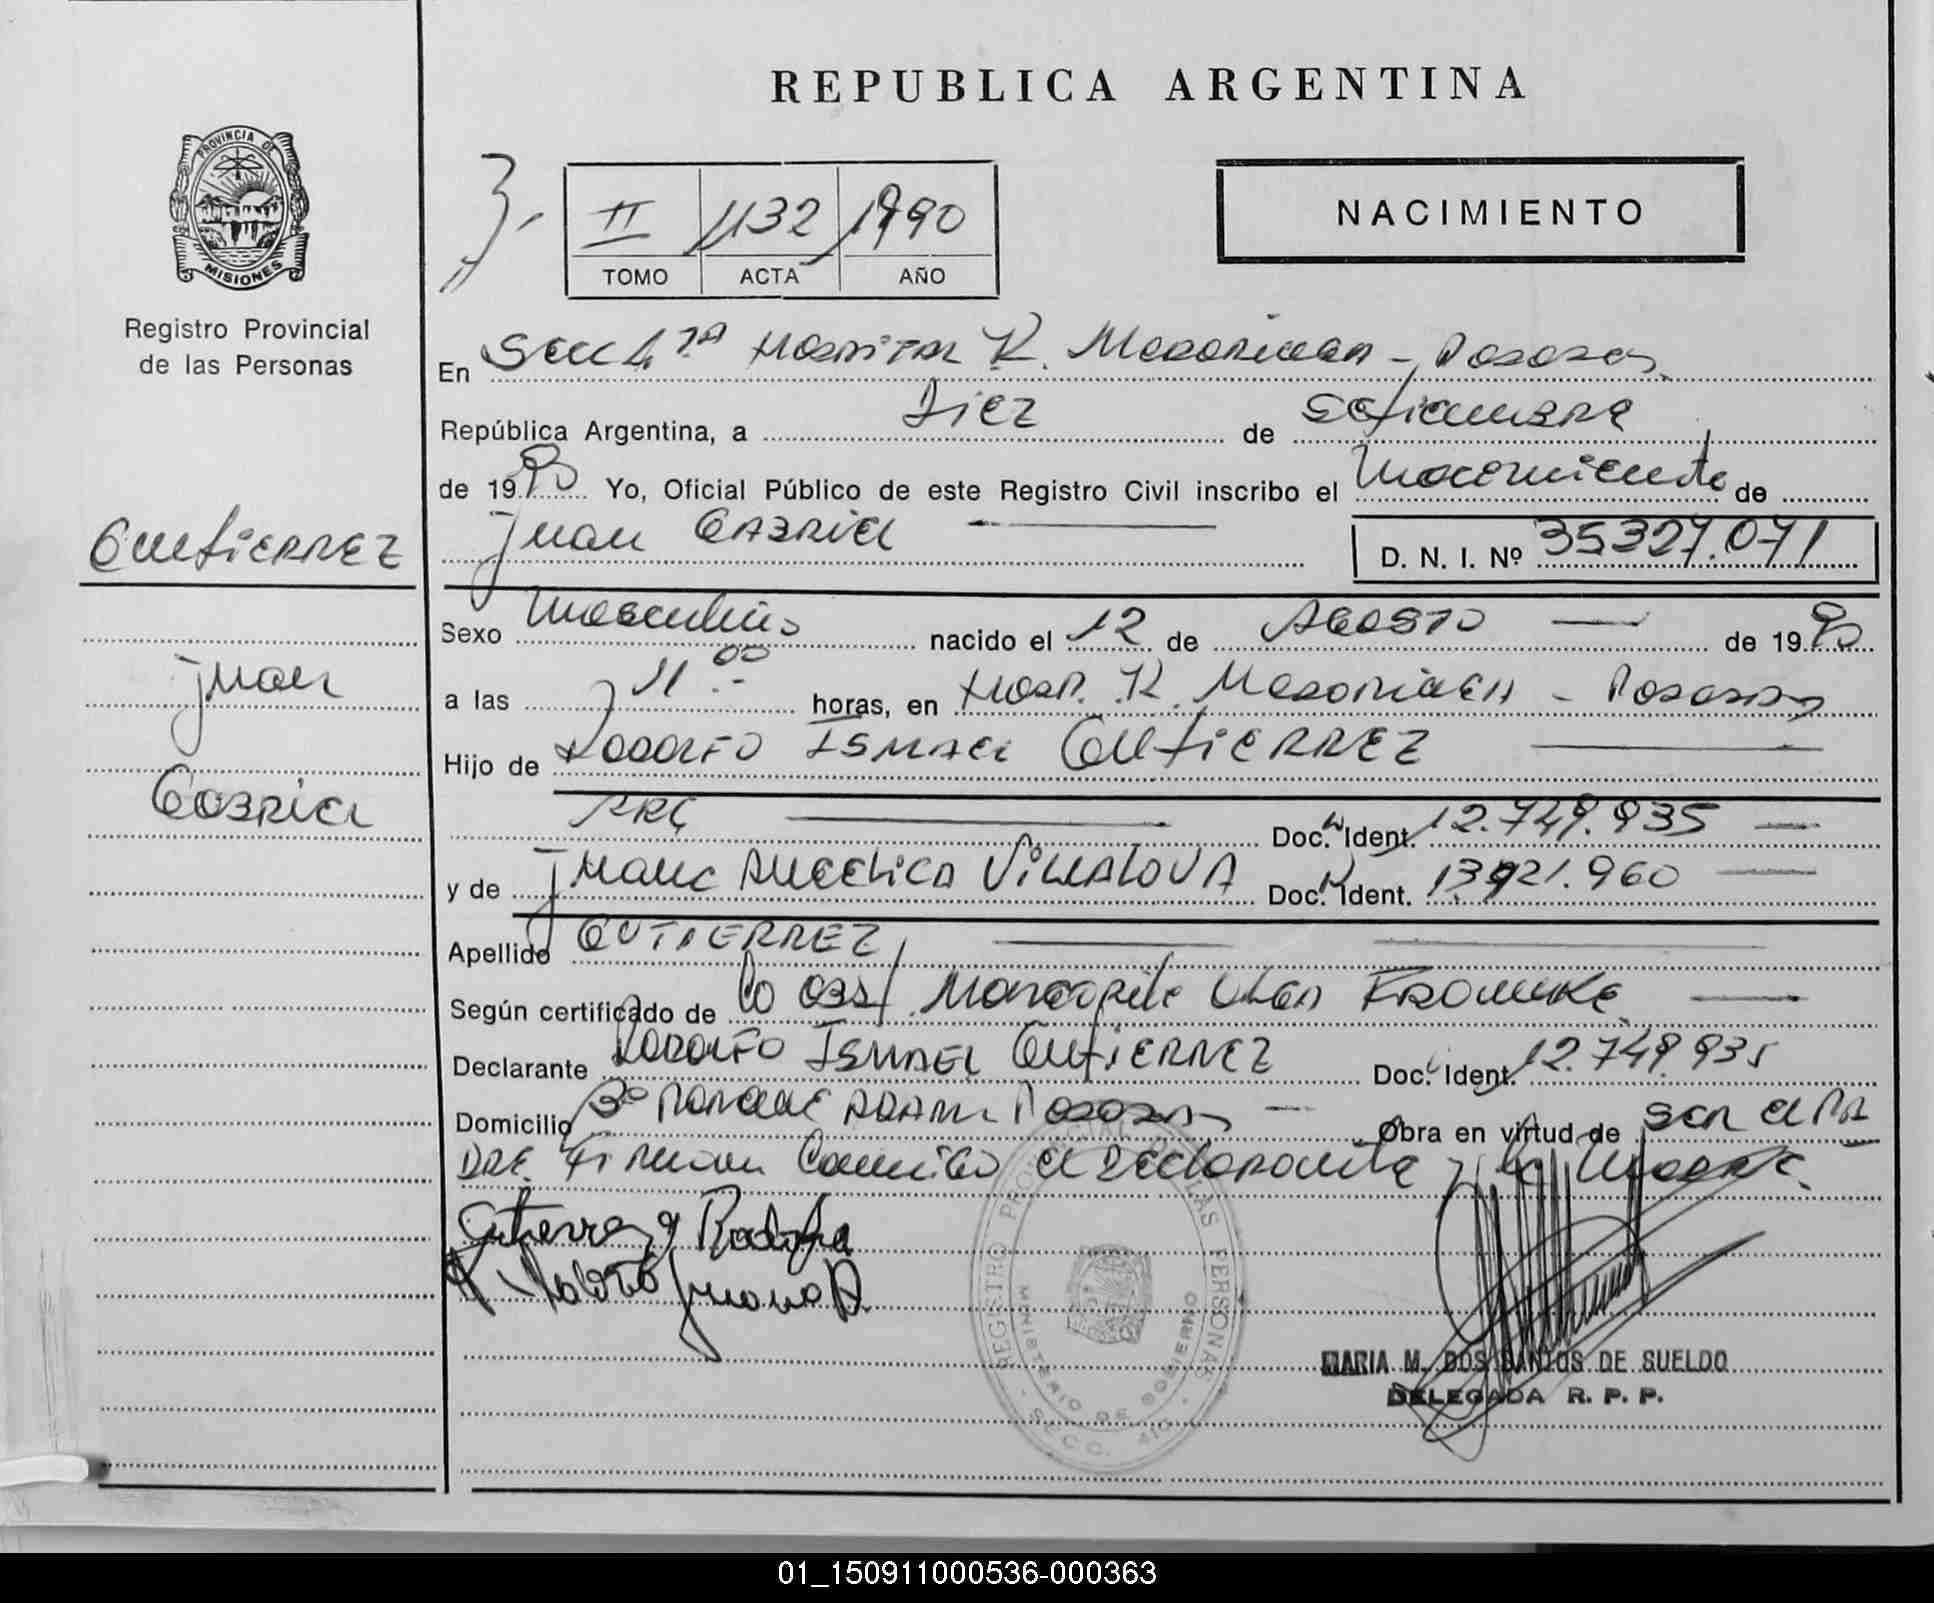 REPUBLICA ARGENTINA
PROVINCIA DE
MISIONES
Registro Provincial
de las Personas
II 1132 1990
TOMO ACTA AÑO
NACIMIENTO
En Secc 4ta Hospital R. Madariaga - Posadas
República Argentina, a Diez de Setiembre
de 1990 Yo, Oficial Público de este Registro Civil inscribo el Nacimiento de
Juan Gabriel
D. N. I. Nº 35327.071
GUTIERREZ
Juan
Gabriel
Sexo Masculino nacido el 12 de Agosto de 1990
a las 11.00 horas, en Hosp. R. Madariaga - Posadas
Hijo de Rodolfo Ismael GUTIERREZ
ARG Doc. Ident. 12.749.935
y de Juana Angelica VILLALOVA Doc. Ident. 13.921.960
Apellido GUTIERREZ
Según certificado de la obst. Margarita Olga
Declarante Rodolfo Ismael GUTIERREZ Doc. Ident. 12.749.935
Domicilio Bº Parque Adam Posadas Obra en virtud de ser el Pa
dre. Firman Conmigo el declarante y la Madre.
Gutierrez Rodolfo
Juana A.
REGISTRO PROVINCIAL DE LAS PERSONAS
MINISTERIO DE GOBIERNO
SECC. 4ta
MARIA M. DOS SANTOS DE SUELDO
DELEGADA R. P. P.
01_150911000536-000363